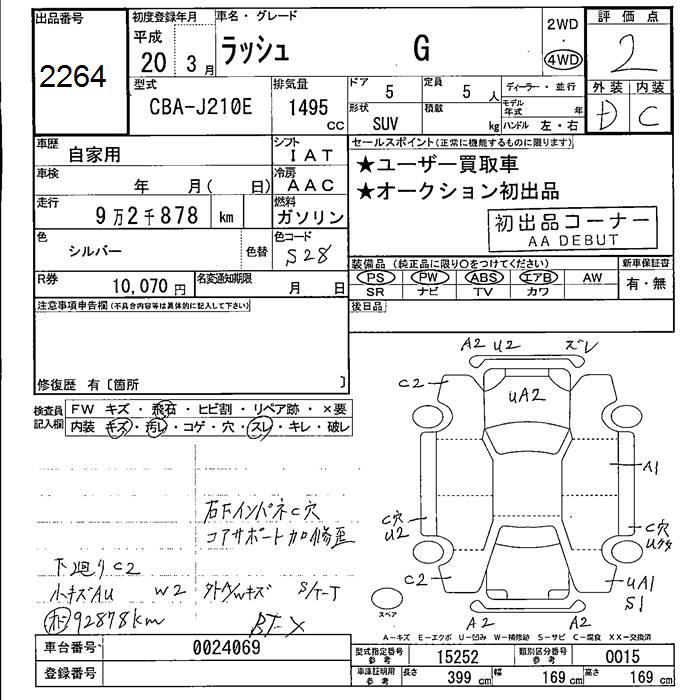 出品番号
2264
初度登録年月
平成
20 3月
車名・グレード
ラッシュ G
2WD
4WD
評価点
2
外装 内装
D C
型式
CBA-J210E
排気量
1495
cc
ドア
5
定員
5 人
形状
SUV
積載
kg
ディーラー・並行
モデル年式 年
ハンドル 左・右
車歴
自家用
シフト
IAT
車検
年 月( 日)
冷房
AAC
走行
9万2千878 km
燃料
ガソリン
色
シルバー
色替
色コード
S28
R券
10,070円
名変通知期限
月 日
セールスポイント(正常に機能するものに限ります)
★ユーザー買取車
★オークション初出品
初出品コーナー
AA DEBUT
装備品(純正品に限り○をつけてください)
PS PW ABS エアB AW
SR ナビ TV カワ
新車保証書
有・無
後日品
注意事項申告欄(不具合内容等は具体的に記入して下さい)
修復歴 有〔箇所 〕
検査員記入欄
FW キズ・飛石・ヒビ割・リペア跡・×要
内装 キズ・汚レ・コゲ・穴・スレ・キレ・破レ
右Fインパネ C穴
コアサポート加修歪
下廻りC2
小キズAU W2 外トWキズ
92878km
A2 U2 ズレ
C2
UA2
A1
C穴
U2
C穴
C2
UA1
S1
A2 A2
スペア
A-キズ E-エクボ U-凹み W-補修跡 S-サビ C-腐食 XX-交換済
車台番号
0024069
登録番号
型式指定番号
参考
15252
類別区分番号
参考
0015
車庫証明用
参考
長さ 399 cm 幅 169 cm 高さ 169 cm